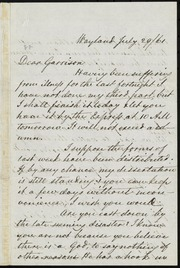 Wayland July 29/61
Dear Garrison
Having been suffering
from illness for the last fortnight I
have not done my chist pool, but
I shall finish it today & let you
have it by the Express at 10 A.M.
tomorrow. It will not exceed a col-
umn.
I suppose the forms of
last week have been distributed.
If by any chance my dissertation
is still standing & you can keep
it a few days without incon-
venience, I wish you would.
Are you cast down by
the late sunday disaster? I know
you are not because you believe
there is a God, to say nothing of
other reasons. He has a hook in